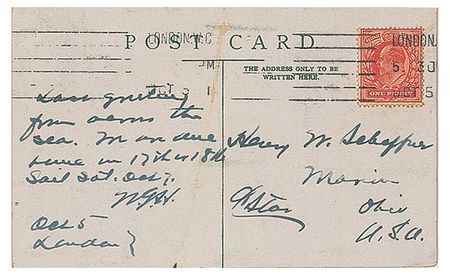 POST CARD
LONDON. W.C
PM
OCT 5 1
THE ADDRESS ONLY TO BE
WRITTEN HERE.
LONDON.
5.30
5
ONE PENNY
Last greeting
from across the
sea. on
home in 17th or 18th
Sail Sat. Oct 7.
W.G.H.
Oct 5
London
Henry W. Scheffner
Marion
Ohio
U.S.A.
Star